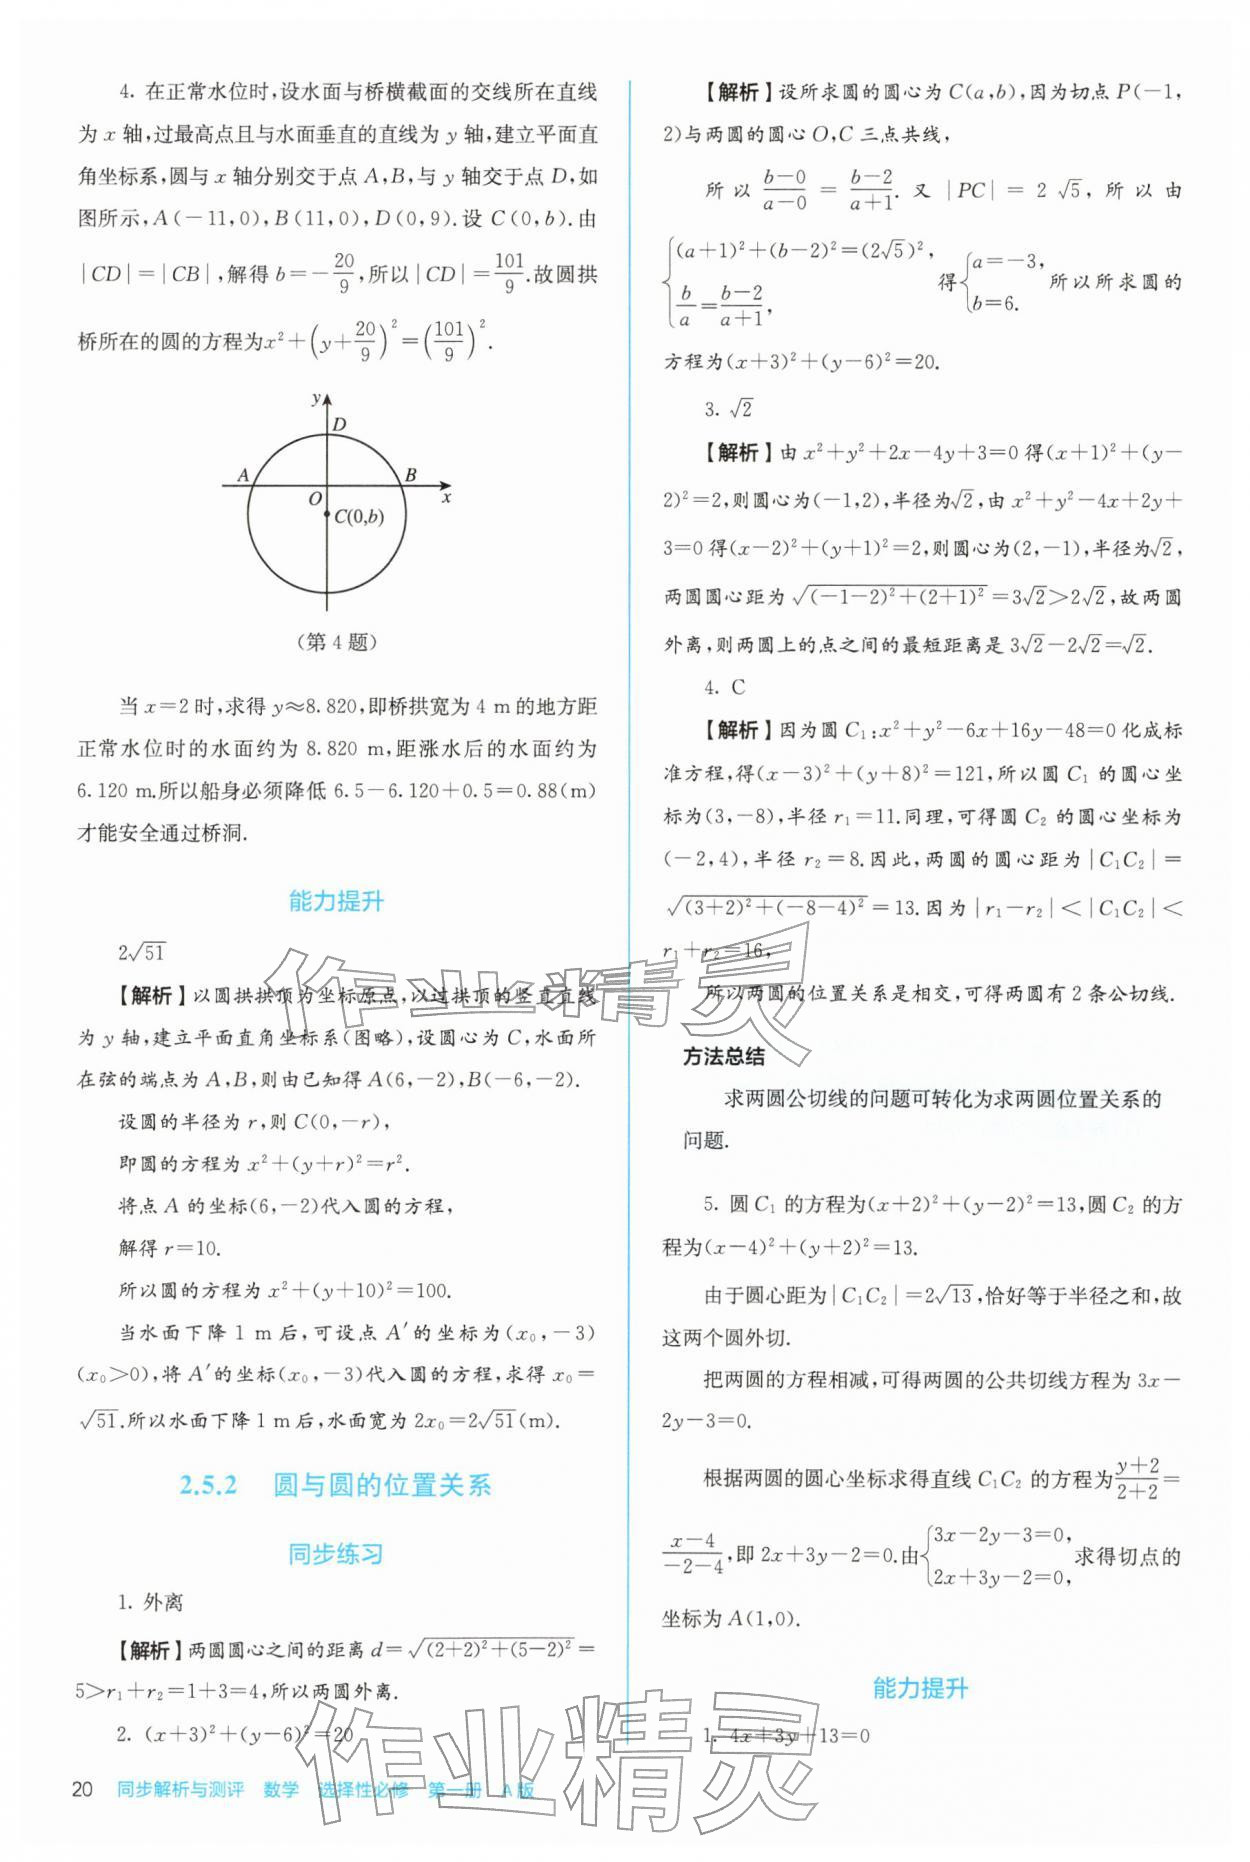 4. 在正常水位时,设水面与桥横截面的交线所在直线
为 x 轴,过最高点且与水面垂直的直线为 y 轴,建立平面直
角坐标系,圆与 x 轴分别交于点 A,B,与 y 轴交于点 D,如
图所示,A(-11,0),B(11,0),D(0,9).设 C(0,b).由
|CD|=|CB|,解得 b=-20/9,所以|CD|=101/9.故圆拱
桥所在的圆的方程为x²+(y+20/9)²=(101/9)².
y
D
A
B
O
x
C(0,b)
(第 4 题)
当 x=2 时,求得 y≈8.820,即桥拱宽为 4 m 的地方距
正常水位时的水面约为 8.820 m,距涨水后的水面约为
6.120 m.所以船身必须降低 6.5-6.120+0.5=0.88(m)
才能安全通过桥洞.
能力提升
2√51
【解析】以圆拱拱顶为坐标原点,以过拱顶的竖直直线
为 y 轴,建立平面直角坐标系(图略),设圆心为 C,水面所
在弦的端点为 A,B,则由已知得 A(6,-2),B(-6,-2).
设圆的半径为 r,则 C(0,-r),
即圆的方程为 x²+(y+r)²=r².
将点 A 的坐标(6,-2)代入圆的方程,
解得 r=10.
所以圆的方程为 x²+(y+10)²=100.
当水面下降 1 m 后,可设点 A′的坐标为(x₀,-3)
(x₀>0),将 A′的坐标(x₀,-3)代入圆的方程,求得 x₀=
√51.所以水面下降 1 m 后,水面宽为 2x₀=2√51(m).
2.5.2 圆与圆的位置关系
同步练习
1. 外离
【解析】两圆圆心之间的距离 d=√((2+2)²+(5-2)²)=
5>r₁+r₂=1+3=4,所以两圆外离.
2. (x+3)²+(y-6)²=20
【解析】设所求圆的圆心为 C(a,b),因为切点 P(-1,
2)与两圆的圆心 O,C 三点共线,
所以 (b-0)/(a-0) = (b-2)/(a+1). 又 |PC| = 2√5, 所以由
{(a+1)²+(b-2)²=(2√5)², b/a=(b-2)/(a+1), 得{a=-3, b=6. 所以所求圆的
方程为(x+3)²+(y-6)²=20.
3. √2
【解析】由 x²+y²+2x-4y+3=0 得(x+1)²+(y-
2)²=2,则圆心为(-1,2),半径为√2,由 x²+y²-4x+2y+
3=0 得(x-2)²+(y+1)²=2,则圆心为(2,-1),半径为√2,
两圆圆心距为 √((-1-2)²+(2+1)²)=3√2>2√2,故两圆
外离,则两圆上的点之间的最短距离是 3√2-2√2=√2.
4. C
【解析】因为圆 C₁:x²+y²-6x+16y-48=0 化成标
准方程,得(x-3)²+(y+8)²=121,所以圆 C₁ 的圆心坐
标为(3,-8),半径 r₁=11.同理,可得圆 C₂ 的圆心坐标为
(-2,4),半径 r₂=8.因此,两圆的圆心距为|C₁C₂|=
√((3+2)²+(-8-4)²)=13.因为|r₁-r₂|<|C₁C₂|<
r₁+r₂=16,
所以两圆的位置关系是相交,可得两圆有 2 条公切线.
方法总结
求两圆公切线的问题可转化为求两圆位置关系的
问题.
5. 圆 C₁ 的方程为(x+2)²+(y-2)²=13,圆 C₂ 的方
程为(x-4)²+(y+2)²=13.
由于圆心距为|C₁C₂|=2√13,恰好等于半径之和,故
这两个圆外切.
把两圆的方程相减,可得两圆的公共切线方程为 3x-
2y-3=0.
根据两圆的圆心坐标求得直线 C₁C₂ 的方程为(y+2)/(2+2)=
(x-4)/(-2-4),即 2x+3y-2=0.由{3x-2y-3=0, 2x+3y-2=0, 求得切点的
坐标为 A(1,0).
能力提升
1. 4x+3y+13=0
20 同步解析与测评 数学 选择性必修 第一册 A版
作业精灵
作业精灵